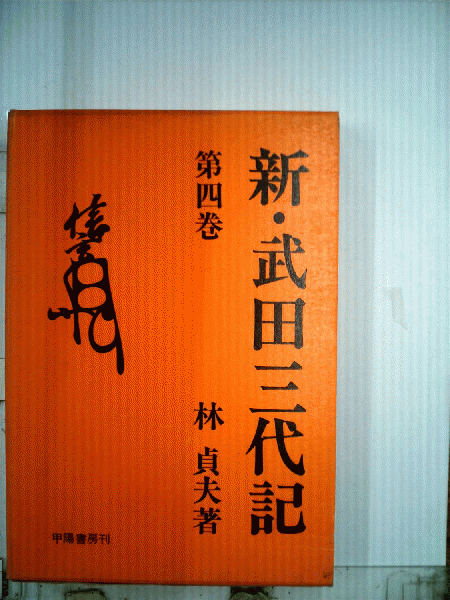 新・武田三代記
第四巻
林 貞夫著
信玄
甲陽書房刊